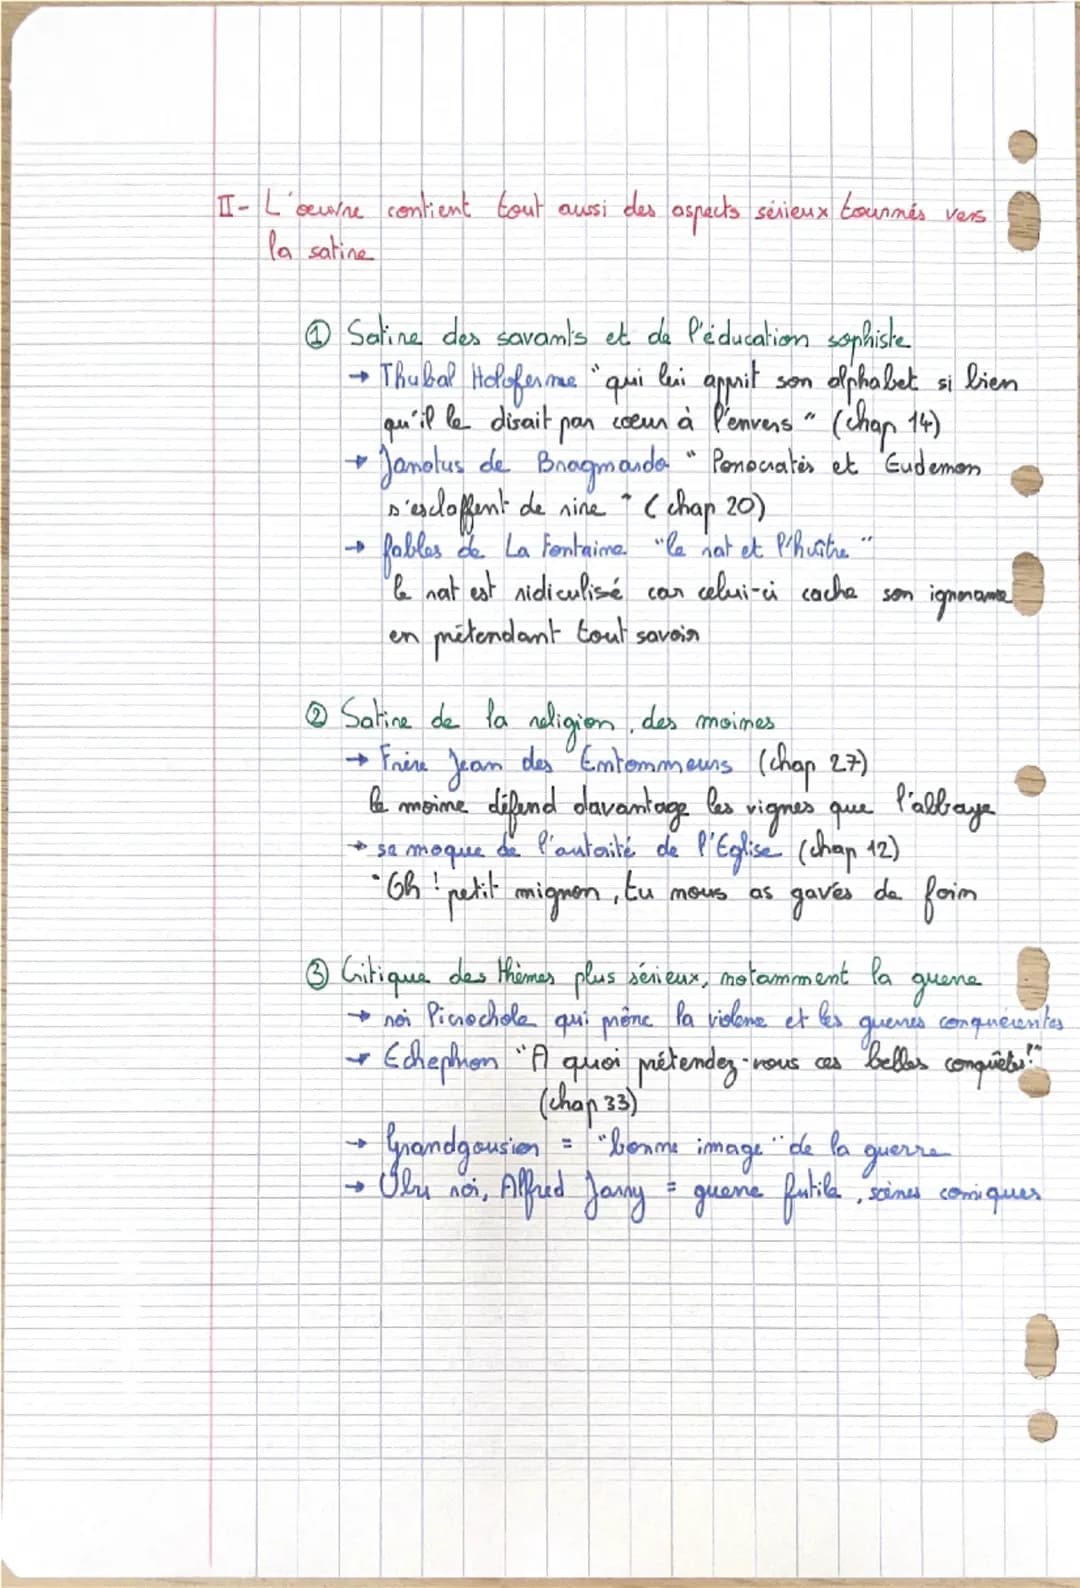 II- L'œuvre contient tout aussi des aspects sérieux tournés vers
la satire
① Satire des savants et de l'éducation sophiste
→ Thubal Holoferme "qui lui apprit son alphabet si bien
qu'il le disait par cœur à l'envers" (chap 14)
→ Janotus de Bragmardo "Ponocratès et Eudemon
s'esclaffent de rire" (chap 20)
→ fables de La Fontaine "le rat et l'huître"
le rat est ridiculisé car celui-ci cache son ignorance
en prétendant tout savoir
② Satire de la religion, des moines
→ Frère Jean des Entommeurs (chap 27)
le moine défend davantage les vignes que l'abbaye
→ se moque de l'autorité de l'Eglise (chap 12)
"Oh ! petit mignon, tu nous as gavés de foin
③ Critique des thèmes plus sérieux, notamment la guerre
→ roi Picrochole qui prône la violence et les guerres conquérentes
→ Echephron "A quoi prétendez-vous ces belles conquêtes!"
(chap 33)
→ Grandgousier = "bonne image" de la guerre
→ Ubu roi, Alfred Jarry = guerre futile, scènes comiques